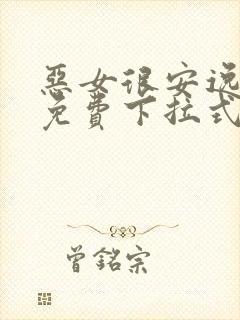 惡女很安逸
免費下拉式
曾銘宗